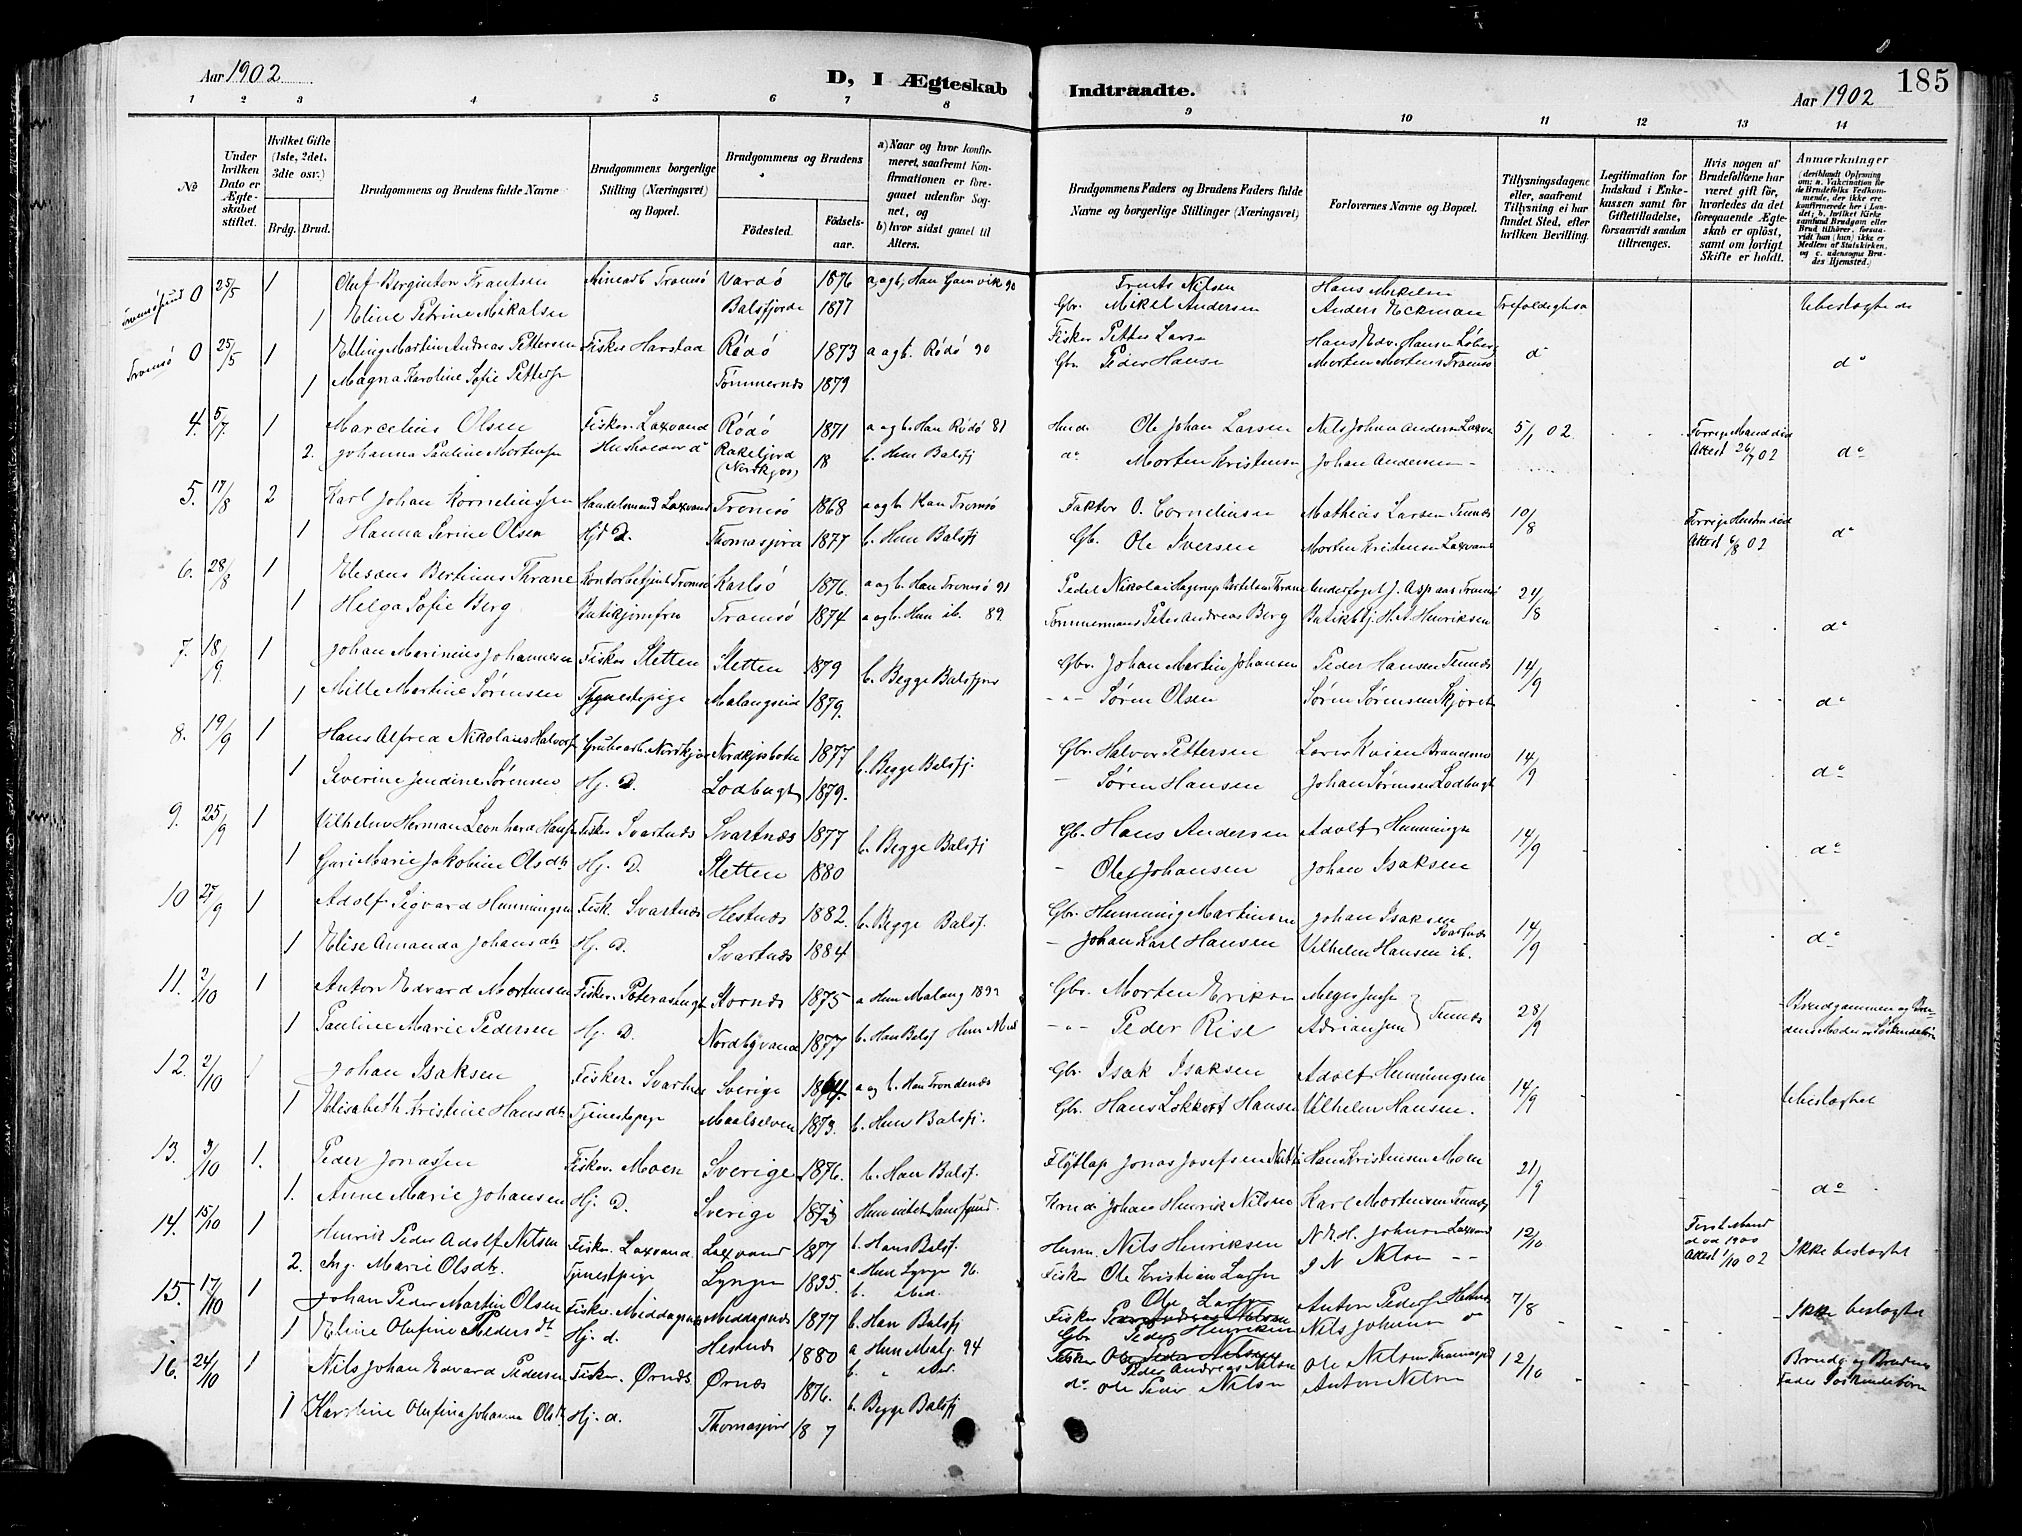 Aar 1902
D, I Ægteskab Indtraadte.
Aar 1902
185
1 2 3 4 5 6 7 8 9 10 11 12 13 14
No
Under hvilken Dato er Ægteskabet stiftet.
Hvilket Gifte (1ste, 2det, 3dte osv.)
Brdg. Brud.
Brudgommens og Brudens fulde Navne
Brudgommens borgerlige Stilling (Næringsvei) og Bopæl.
Brudgommens og Brudens
Fødested.
Fødselsaar.
a) Naar og hvor konfirmeret, saafremt Konfirmationen er foregaaet udenfor Sognet, og
b) hvor sidst gaaet til Alters.
Brudgommens Faders og Brudens Faders fulde Navne og borgerlige Stillinger (Næringsvei)
Forlovernes Navne og Bopæl.
Tillysningsdagene eller, saafremt Tillysning ei har fundet Sted, efter hvilken Bevilling.
Legitimation for Indskud i Enkekassen samt for Giftetilladelse, forsaavidt saadan tiltrænges.
Hvis nogen af Brudefolkene har været gift før, hvorledes da det foregaaende Ægteskab er opløst, samt om lovligt Skifte er holdt.
Anmærkninger
Tromsøsund 0 25/5 1 Oluf Berginton Frantsen Minearb Tromsø Vardø 1876 a og b, Han Gamvik 90 Frants Nilsen Hans Mikelsen Trefoldighsd Ubeslægtede
1 Eline Petrine Mikalsen Balsfjorde 1877 Gbr. Mikel Andersen Anders Eckman
Tromsø 0 25/5 1 Elling Martin Andreas Pettersen Fisker Harstad Rødø 1873 a og b. Rødø 90 Fisker Petter Larsen Hans Edv. Hansen Løberg do do
1 Magna Karoline Sofie Petters Tømmernes 1879 Gbr. Peder Hansen Morten Mortens Tromsø
4. 5/7 1 Marcelius Olsen Fisker Laxvand Rødø 1871 a og b. Han Rødø 81 Husm Ole Johan Larsen Nils Johan Andersen Laxvn 5/1 02. Forrige Mand død
2. Johanna Pauline Mortensen Husholder do Rakeljord (Nordkjos) 18 b. Hun Balsfj do Morten Kristensen Johan Andersen - Attest 26/7 02 do
5. 17/8 2 Karl Johan Korneliussen Handelsmand Laxvand Tromsø 1868 a og b Han Tromsø Faktor O. Cornelius Mathias Larsen Tennes 10/8 Forrige Hustru død
1 Hanna Perine Olsen Hj D. Thomasjord 1877 b. Hun Balsfj Gbr. Ole Iversen Morten Kristensen Laxvand Attest 6/8 02 do
6. 28/8 1 Elisæus Bertinus Thrane Kontorbetjent Tromsø Karlsø 1876. a og b. Han Tromsø 91 Pedel Nikolai Hagerup Bertelsen Thrane Underfoget J. Aspaas Tromsø 24/8
1 Helga Sofie Berg Butikjomfru Tromsø 1874 a og b. Hun ib. 89. Tømmermand Peter Andreas Berg Butikbtj. H. A. Henriksen do
7. 18/9. 1 Johan Marinius Johannesen Fisker Sletten Sletten 1879 b. Begge Balsfjord Gbr. Johan Martin Johansen Peder Hansen Tennes 14/9
1 Mille Martine Sørensen Tjenestepige Malangseid 1879. -"- Søren Olsen Søren Sørensen Skjæret do
8. 19/9 1 Hans Alfred Nikolais Halvors Grubearb. Nordkjos Nordkjosbotn 1877 b. Begge Balsfj. Gbr. Halvor Pettersen Lars Kvien 14/9
1 Severine Jendine Sørensen Hj. D. Lodbugt 1879. - Søren Hansen Johan Sørensen Lodbugt do
9. 25/9 1 Vilhelm Herman Leonhard Hansen Fisker Svartnæs Svartnæs 1877 b. Begge Balsfj Gb. Hans Andersen Adolf Henningsn 14/9
1 Guri Marie Jakobine Olsdtr Hj. D. Sletten 1880 - Ole Johansen Johan Isaksen do
10 27/9 1 Adolf Sigvard Henningsen Fisk. Svartnæs Hestnæs 1882. b. Begge Balsf. Gbr. Henning Martinsen Johan Isaksen Svartnæs 14/9
1 Elise Amanda Johansdtr Hj. D. Svartnæs 1884 - Johan Karl Hansen Vilhelm Hansen ib. do
11. 2/10 1 Anton Edvard Mortensen Fisker Stornæs 1875 a Hun Malang 1892 Gbr. Morten Eriksen Meyer Tennes 28/9 - Brudgommen og Brudens Moder er Søskendebørn
1 Pauline Marie Pedersen Hj. D. Nordbyvand 1877 b. Han Balsf Hun Mal -"- Peder Rise Adrian
12. 2/10 1 Johan Isaksen Fisker. Svartnes Sverige 1864. a og b. Han Trondenæs Gbr. Isak Isaksen Adolf Henningsen 14/9 Ubeslægtet
1 Elisabeth Kristine Hansdtr Tjenestepige Maalselven 1873. b. Hun Balsfj. Gbr. Hans Lokkort Hansen Vilhelm Hansen.
13. 3/10 1. Peder Jonassen Fisker. Moen Sverige 1876. b. Han Balsf. Flytlap Jonas Josefsen Hans Kristensen Moen 21/9
1. Anne Marie Johansen Hj. D. Sverige 1873 Hun intet Samfund. Johan Henrik Nilsen Karl Mortensen Tennes do
14. 15/10 1 Henrik Peder Adolf Nilsen Fisker. Laxvand. Laxvand 1877 b. Hans Balsf. Husm. Nils Henriksen N. E. H. Johnsen Laxvand 12/10 Første Mand død 1900
2. Ing. Marie Olsdtr. Tjenestpige Lyngen 1835. a. Hun Lyngn 96. b. ibid. Fisker Ole Kristian Larsen I N Nilsen -- Attest 1/10 02 Ikke beslægtet
15. 17/10 1 Johan Peder Martin Olsen Fisker. Middagsnes Middagsnæs 1877 b. Han Balsfj Fisker Ole Larsen Anton Peders Hestnes 7/8
1 Eline Olufine Pedersdtr Hj. d. Hestnæs 1880 a Hun Malg. 94 b. " ibid. Gbr Peder Henriksen Nils Johnsen " Ikke beslægtet
16. 24/10 1 Nils Johan Edvard Pedersen Fisker. Ørnæs Ørnæs 1876. b. Begge Balsfj Peder Andreas Nilsen Ole Nilsen Thomasjord 12/10 Brudg. og Brudens Fader Søskendebørn
1 Karoline Olufina Johanna Olsdtr Hj. d. Thomasjord 18 7 do Ole Peder Nilsen Anton Nilsen